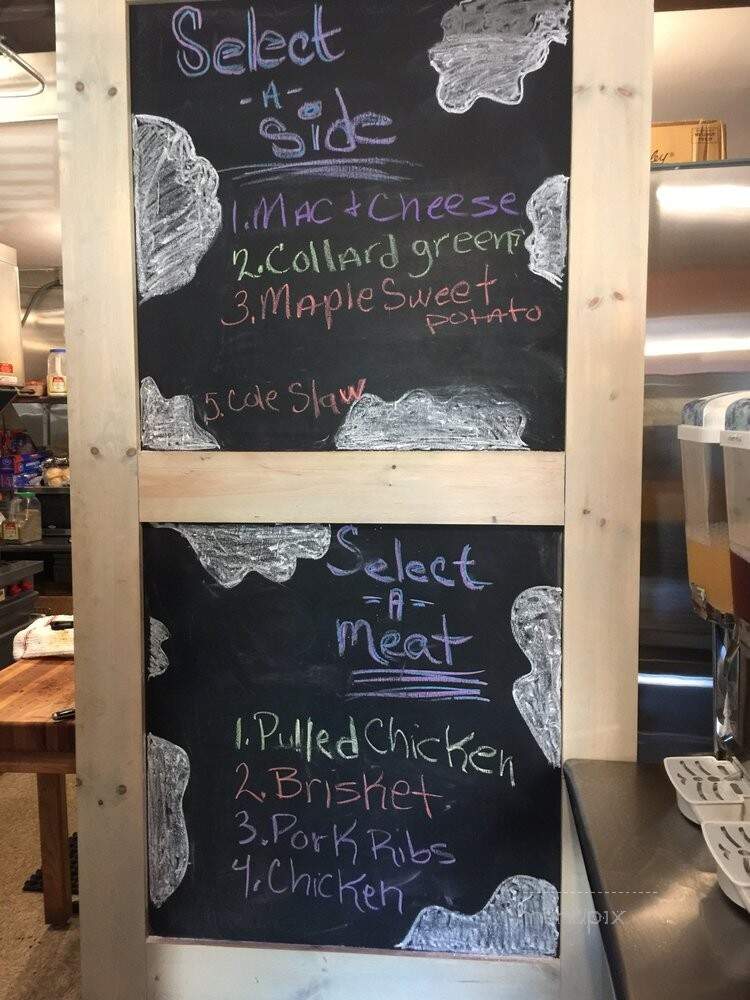 Select
-A-
Side
1. Mac & Cheese
2. Collard greens
3. Maple Sweet
potato
5. Cole Slaw
Select
-A-
Meat
1. Pulled Chicken
2. Brisket
3. Pork Ribs
4. Chicken